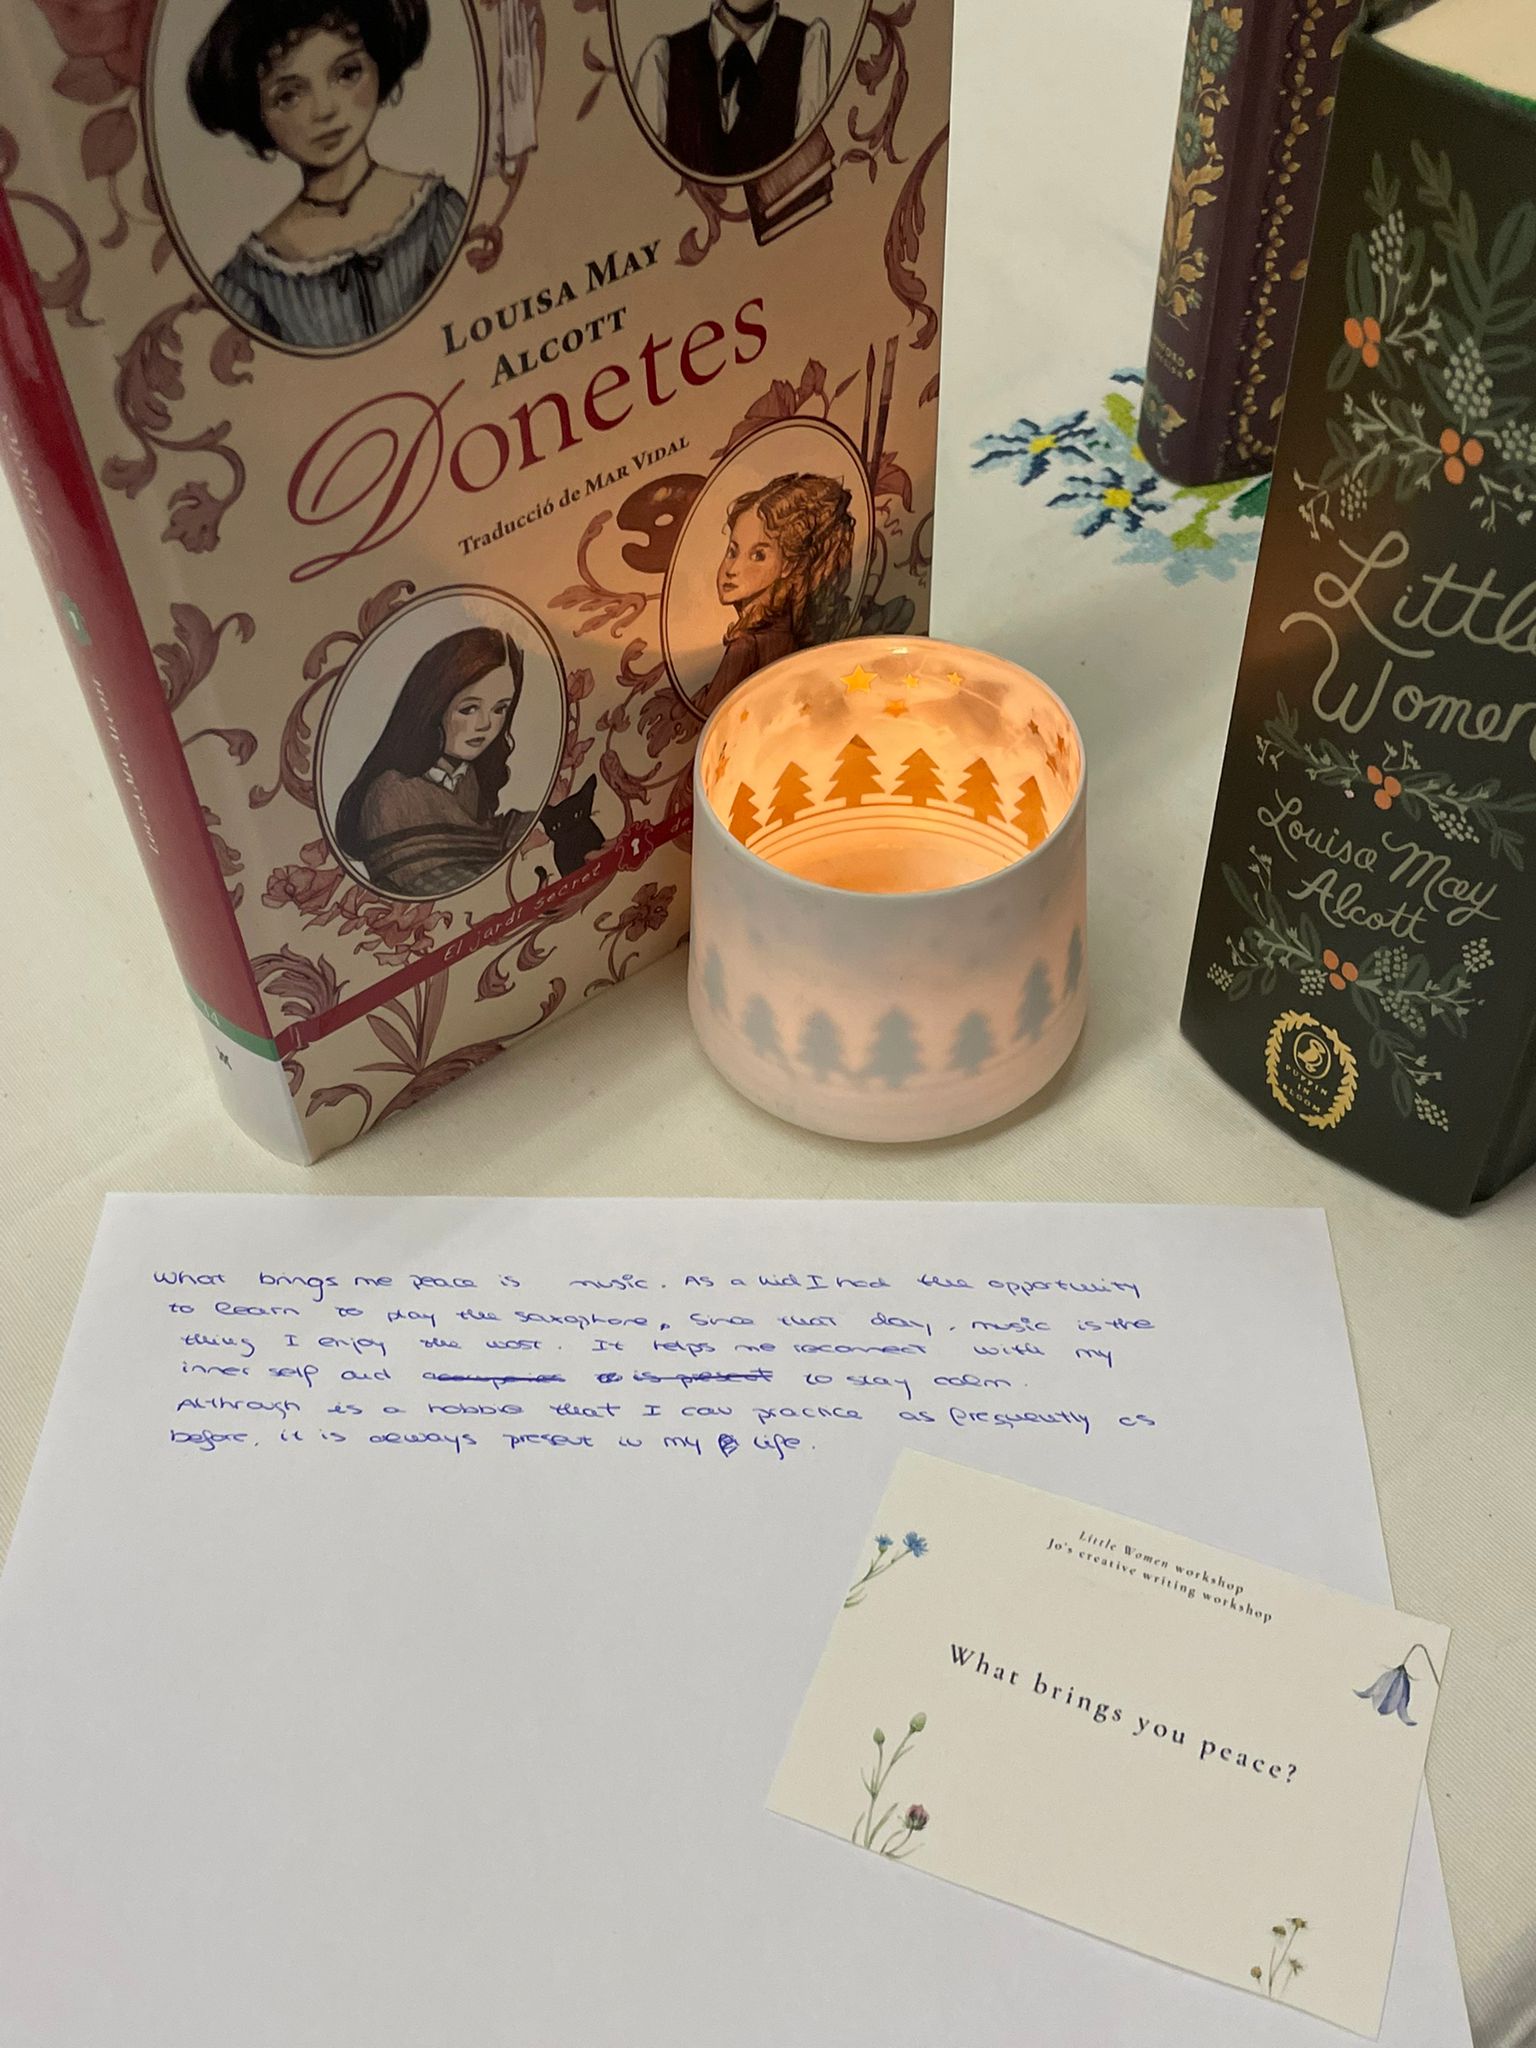 LOUISA MAY
ALCOTT
Donetes
Traducció de MAR VIDAL
El jardí secret de
14
Little
Women
Louisa May
Alcott
PUFFIN
IN
BLOOM
What brings me peace is music. As a kid I had the opportunity
to learn to play the saxophone. Since that day, music is the
thing I enjoy the most. It helps me reconnect with my
inner self and to stay calm.
Althrough is a hobbie that I can practice as frequently as
before, it is always present in my life.
Little Women workshop
Jo's creative writing workshop
What brings you peace?